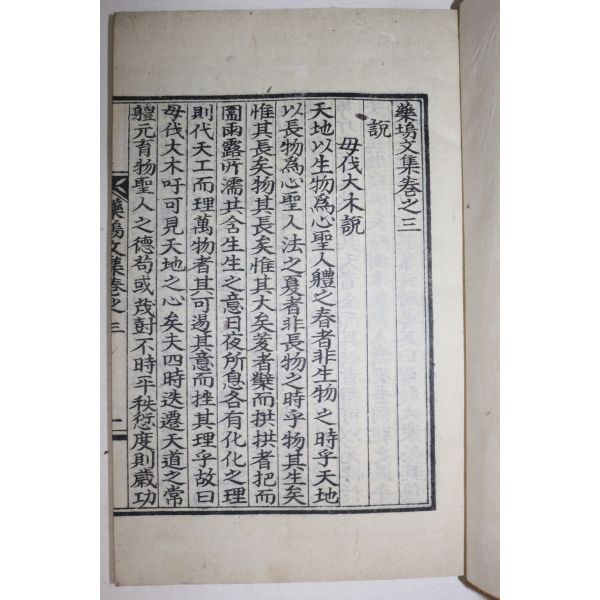 藥塢文集卷之三
說
毋伐大木說
天地以生物爲心聖人軆之春者非生物之時乎天地
以長物爲心聖人法之夏者非長物之時乎物其生矣
惟其長矣物其長矣惟其大矣荄者櫱而拱拱者把而
圍雨露所濡共含生生之意日夜所息各有化化之理
則代天工而理萬物者其可遏其意而挫其理乎故曰
毋伐大木吁可見天地之心矣夫四時迭遷天道之常
軆元育物聖人之德苟或茂對不時平秩愆度則歲功
藥塢文集卷之三